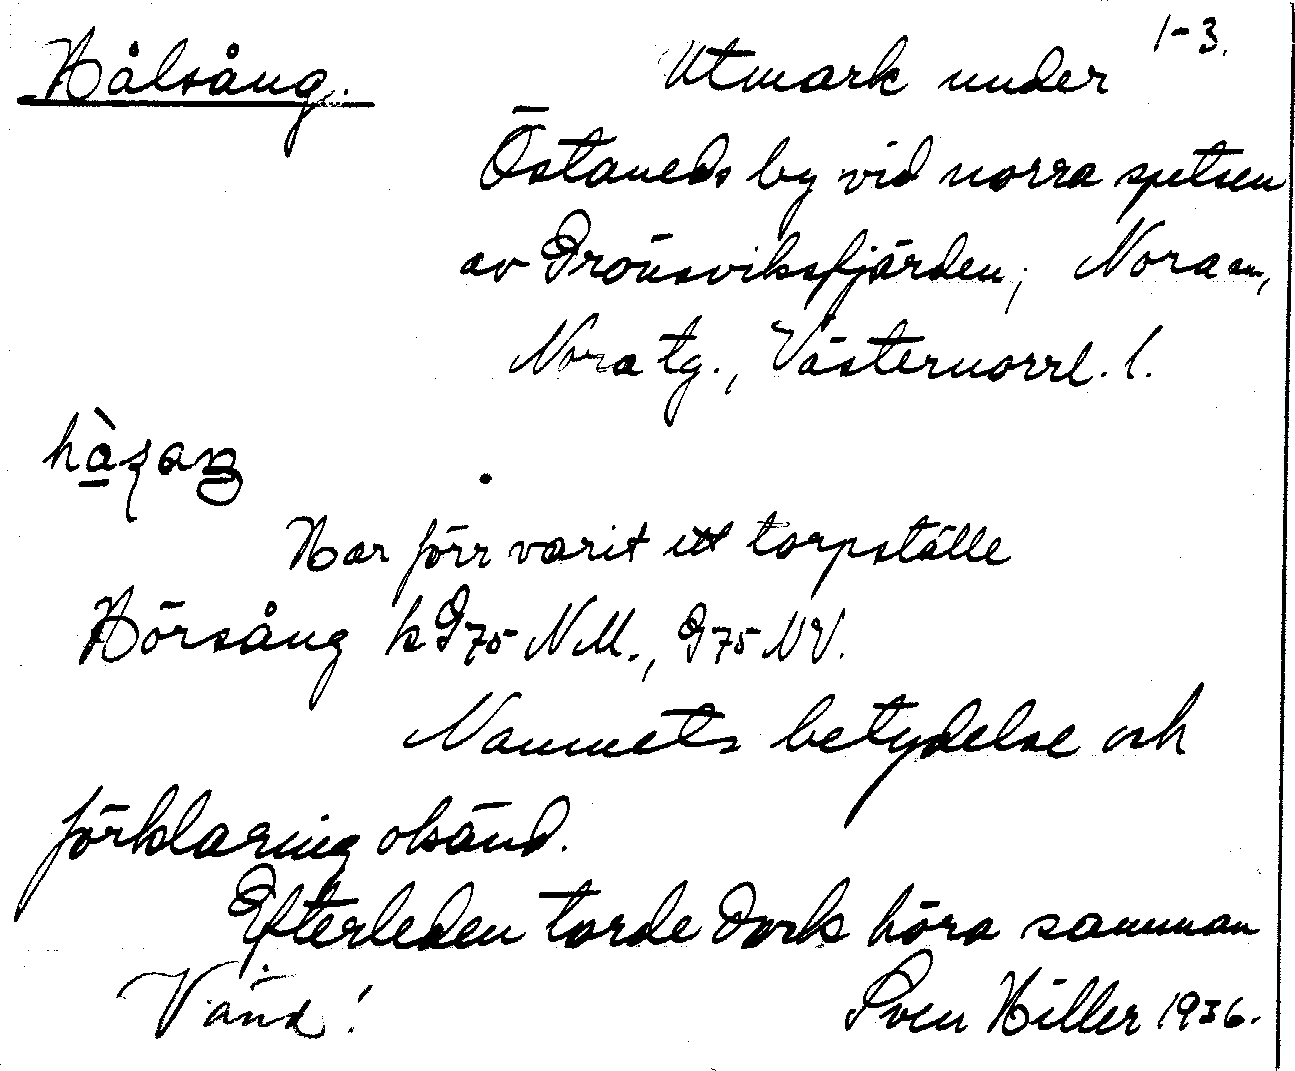 1-3.
Hålsång. Utmark under
Östaneds by vid norra spetsen
av Prönsviksfjärden, Nora sn,
Nora tg., Västernorrl. l.
Har förr varit ett torpställe
Hörsång k D75 NM., D75 NV.
Namnets betydelse och
förklaring okänd.
Efterleden torde dock höra samman
Vänd! Sven Hiller 1936.